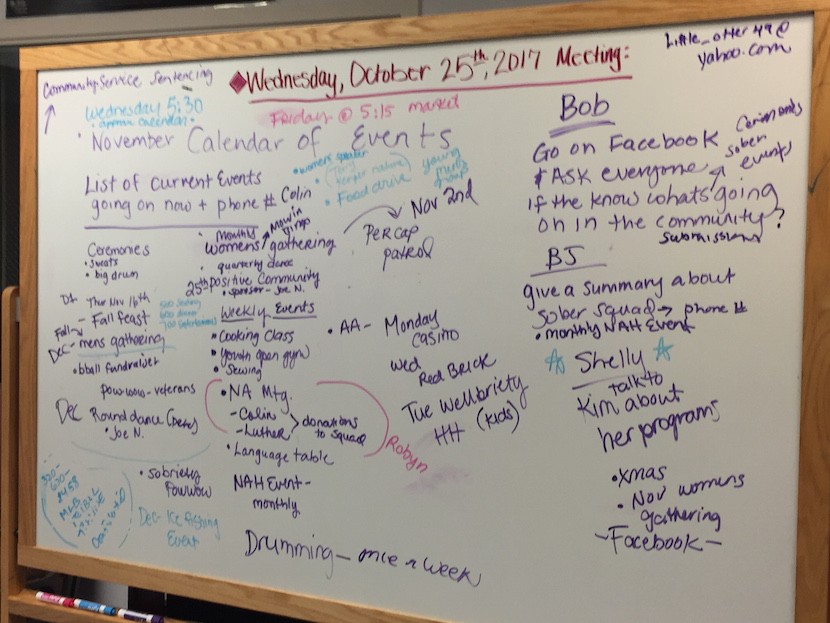 Community Service Sentencing
◆Wednesday, October 25th, 2017 Meeting:
Little_otter49@
yahoo.com
Wednesday 5:30
Friday @ 5:15 market
November Calendar of Events
List of current Events
going on now + phone # Colin
• womens
• Food drive
young
mens
groups
Ceremonies
• sweats
• big drum
• monthly
womens gathering
Mowin
Bingo
• quarterly dance
25th positive Community
• sponsor - Joe N.
Per Cap
patrol
Nov 2nd
Thur Nov 16th
Fall - Fall feast
Dec - mens gathering
• bball fundraiser
pow-wow - veterans
Dec Round dance (Pete)
• Joe N.
Weekly Events
• Cooking Class
• Youth open gym
• Sewing
• NA Mtg.
- Colin
- Luther
donations
to squad
Robyn
• Language table
NAH Event -
monthly
• sobriety
Powwow
Dec - Ice fishing
Event
Drumming - once a week
• AA - Monday
casino
Wed
Red Brick
Tue Wellbriety
HH (kids)
Bob
Go on Facebook
& ASK everyone
if the know whats going
on in the community?
submissions
Ceremonies
sober
events
BJ
give a summary about
Sober Squad → phone #
• monthly NAH Event
☆ Shelly ☆
talk to
Kim about
her programs
• xmas
• Nov womens
gathering
- Facebook -